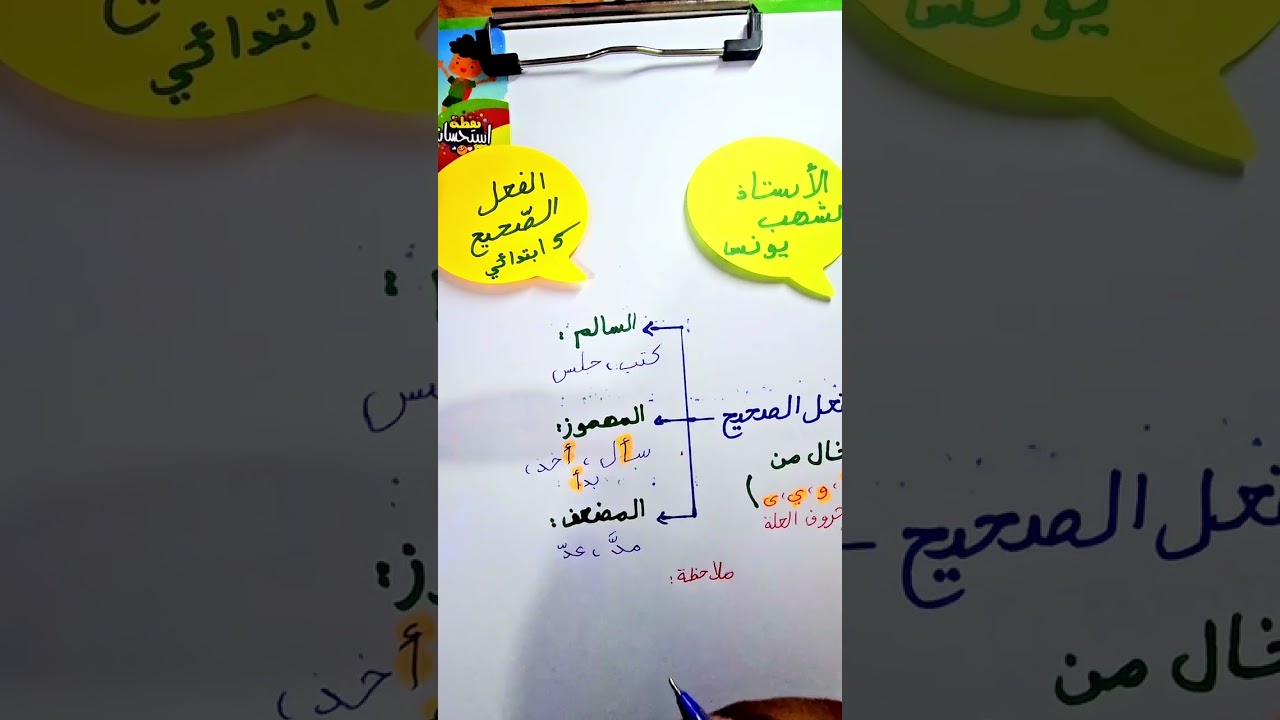 نقطة
استحسان
الفعل
الصّحيح
5 ابتدائي
الأستاذ
لشهب
يونس
السالم :
كتب ، جلس
فعل الصحيح
المهموز:
خال من
سأل ، أخذ،
بدأ
و، ي، ى )
حروف العلة
المضعف :
مدَّ ، عدّ
ملاحظة :